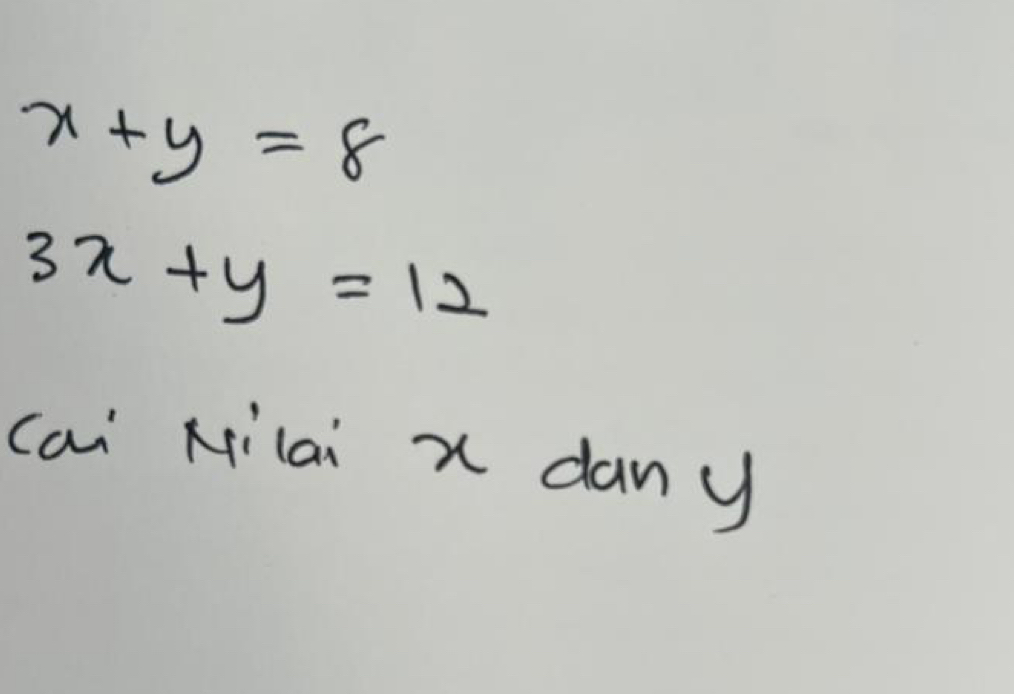 x + y = 8
3x + y = 12
Cai Nilai x dan y